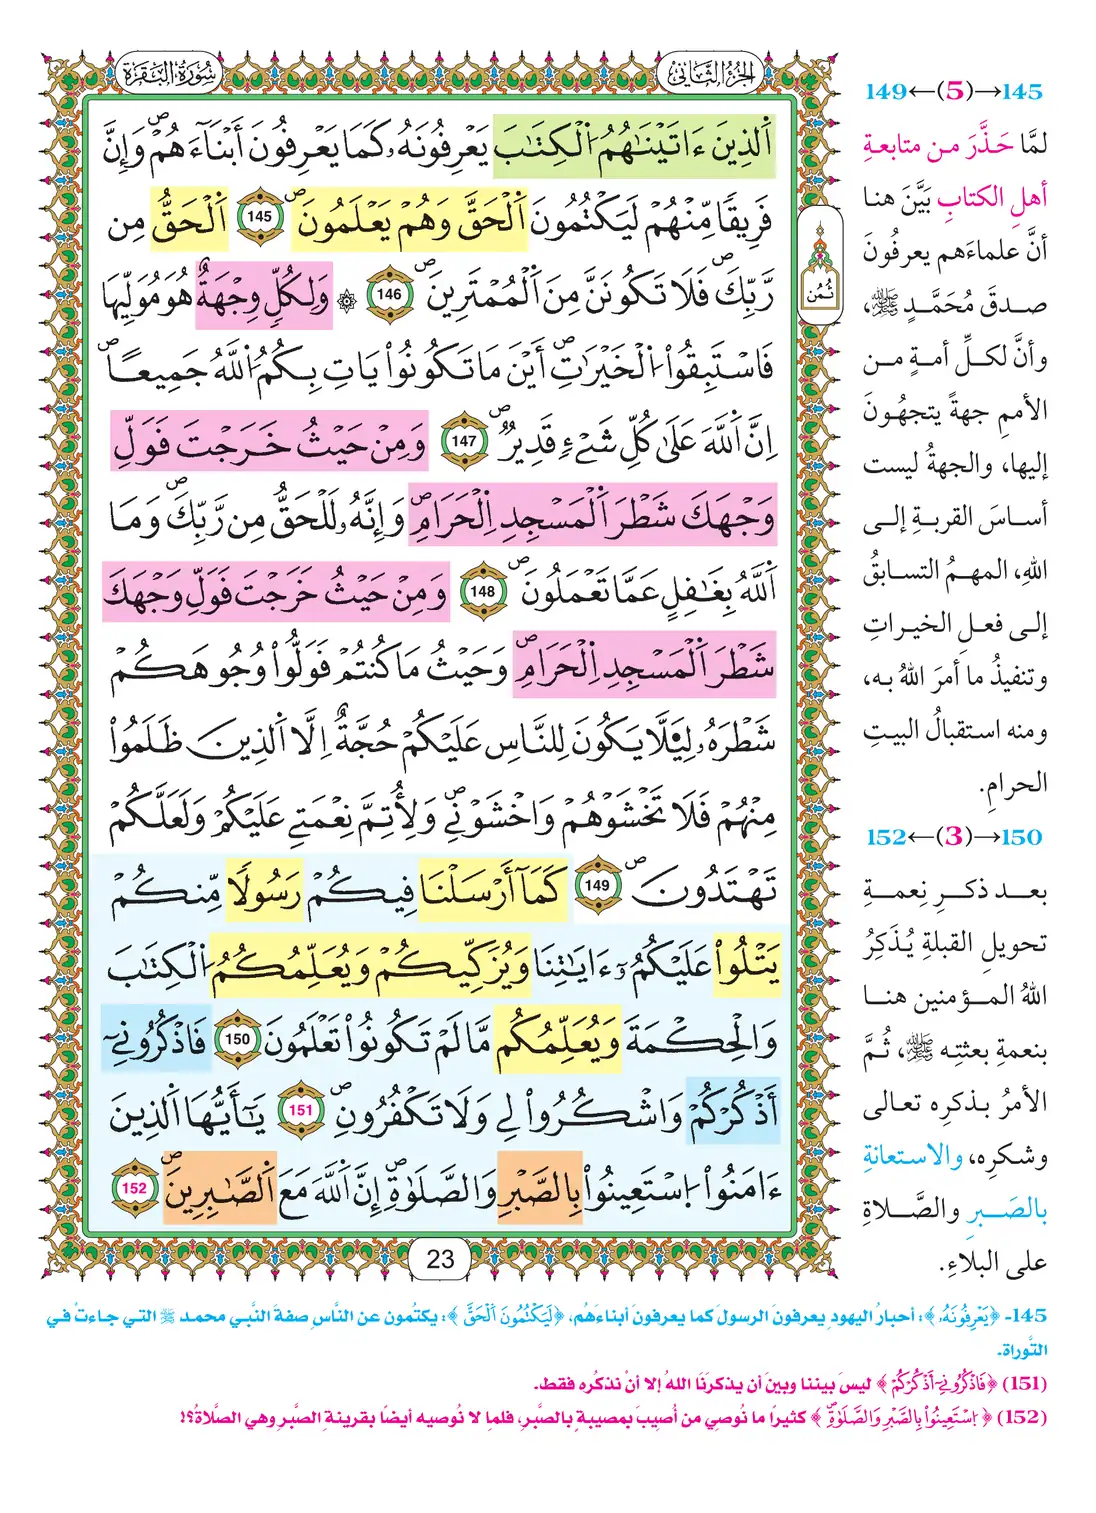 الجزء الثاني
سورة البقرة
اَ۬لذِينَ ءَاتَيْنَٰهُمُ اُ۬لْكِتَٰبَ يَعْرِفُونَهُۥ كَمَا يَعْرِفُونَ أَبْنَآءَهُمْۖ وَإِنَّ
فَرِيقاٗ مِّنْهُمْ لَيَكْتُمُونَ اَ۬لْحَقَّ وَهُمْ يَعْلَمُونَۖ 145 اَ۬لْحَقُّ مِن
رَّبِّكَۖ فَلَا تَكُونَنَّ مِنَ اَ۬لْمُمْتَرِينَۖ 146 ۞ وَلِكُلّٖ وِجْهَةٌ هُوَ مُوَلِّيهَا
فَاسْتَبِقُواْ اُ۬لْخَيْرَٰتِۖ أَيْنَ مَا تَكُونُواْ يَاتِ بِكُمُ اُ۬للَّهُ جَمِيعاًۖ
اِنَّ اَ۬للَّهَ عَلَىٰ كُلِّ شَےْءٖ قَدِيرٞۖ 147 وَمِنْ حَيْثُ خَرَجْتَ فَوَلِّ
وَجْهَكَ شَطْرَ اَ۬لْمَسْجِدِ اِ۬لْحَرَامِۖ وَإِنَّهُۥ لَلْحَقُّ مِن رَّبِّكَۖ وَمَا
اَ۬للَّهُ بِغَٰفِلٍ عَمَّا تَعْمَلُونَۖ 148 وَمِنْ حَيْثُ خَرَجْتَ فَوَلِّ وَجْهَكَ
شَطْرَ اَ۬لْمَسْجِدِ اِ۬لْحَرَامِۖ وَحَيْثُ مَا كُنتُمْ فَوَلُّواْ وُجُوهَكُمْ
شَطْرَهُۥ لِيَلَّا يَكُونَ لِلنَّاسِ عَلَيْكُمْ حُجَّةٌ اِلَّا اَ۬لذِينَ ظَلَمُواْ
مِنْهُمْ فَلَا تَخْشَوْهُمْ وَاخْشَوْنِےۖ وَلِأُتِمَّ نِعْمَتِے عَلَيْكُمْ وَلَعَلَّكُمْ
تَهْتَدُونَۖ 149 كَمَآ أَرْسَلْنَا فِيكُمْ رَسُولاٗ مِّنكُمْ
يَتْلُواْ عَلَيْكُمُۥٓ ءَايَٰتِنَا وَيُزَكِّيكُمْ وَيُعَلِّمُكُمُ اُ۬لْكِتَٰبَ
وَالْحِكْمَةَ وَيُعَلِّمُكُم مَّا لَمْ تَكُونُواْ تَعْلَمُونَ 150 فَاذْكُرُونِےٓ
أَذْكُرْكُمْ وَاشْكُرُواْ لِے وَلَا تَكْفُرُونِۖ 151 يَٰٓأَيُّهَا اَ۬لذِينَ
ءَامَنُواْ اُ۪سْتَعِينُواْ بِالصَّبْرِ وَالصَّلَوٰةِۖ إِنَّ اَ۬للَّهَ مَعَ اَ۬لصَّٰبِرِينَۖ 152
ثُمُن
23
145→(5)←149
لمَّا حَذَّرَ من متابعةِ
أهلِ الكتابِ بَيَّنَ هنا
أنَّ علماءَهم يعرفُونَ
صدقَ مُحَمَّدٍ ﷺ،
وأنَّ لكلِّ أمةٍ من
الأممِ جهةً يتجهُونَ
إليها، والجهةُ ليست
أساسَ القربةِ إلى
اللهِ، المهمُ التسابقُ
إلى فعلِ الخيراتِ
وتنفيذُ ما أمرَ اللهُ به،
ومنه استقبالُ البيتِ
الحرامِ.
150→(3)←152
بعد ذكرِ نِعمةِ
تحويلِ القبلةِ يُذَكِرُ
اللهُ المؤمنين هنا
بنعمةِ بعثتِه ﷺ، ثُمَّ
الأمرُ بذكرِه تعالى
وشكرِه، والاستعانةِ
بالصَبرِ والصَّلاةِ
على البلاءِ.
145- ﴿يَعْرِفُونَهُۥ﴾: أحبارُ اليهودِ يعرفونَ الرسولَ كما يعرفونَ أبناءَهُم، ﴿لَيَكْتُمُونَ اَ۬لْحَقَّ﴾: يكتُمون عن النَّاسِ صفةَ النَّبي محمد ﷺ التي جاءتْ في
التَّوراة.
(151) ﴿فَاذْكُرُونِےٓ أَذْكُرْكُمْ﴾ ليسَ بيننا وبينَ أن يذكرَنَا اللهُ إلا أنْ نذكُره فقط.
(152) ﴿اُ۪سْتَعِينُواْ بِالصَّبْرِ وَالصَّلَوٰةِۖ﴾ كثيرًا ما نُوصِي من أُصِيبَ بمصيبةٍ بالصَّبرِ، فلما لا نُوصيه أيضًا بقرينةِ الصَّبرِ وهي الصَّلاةُ؟!